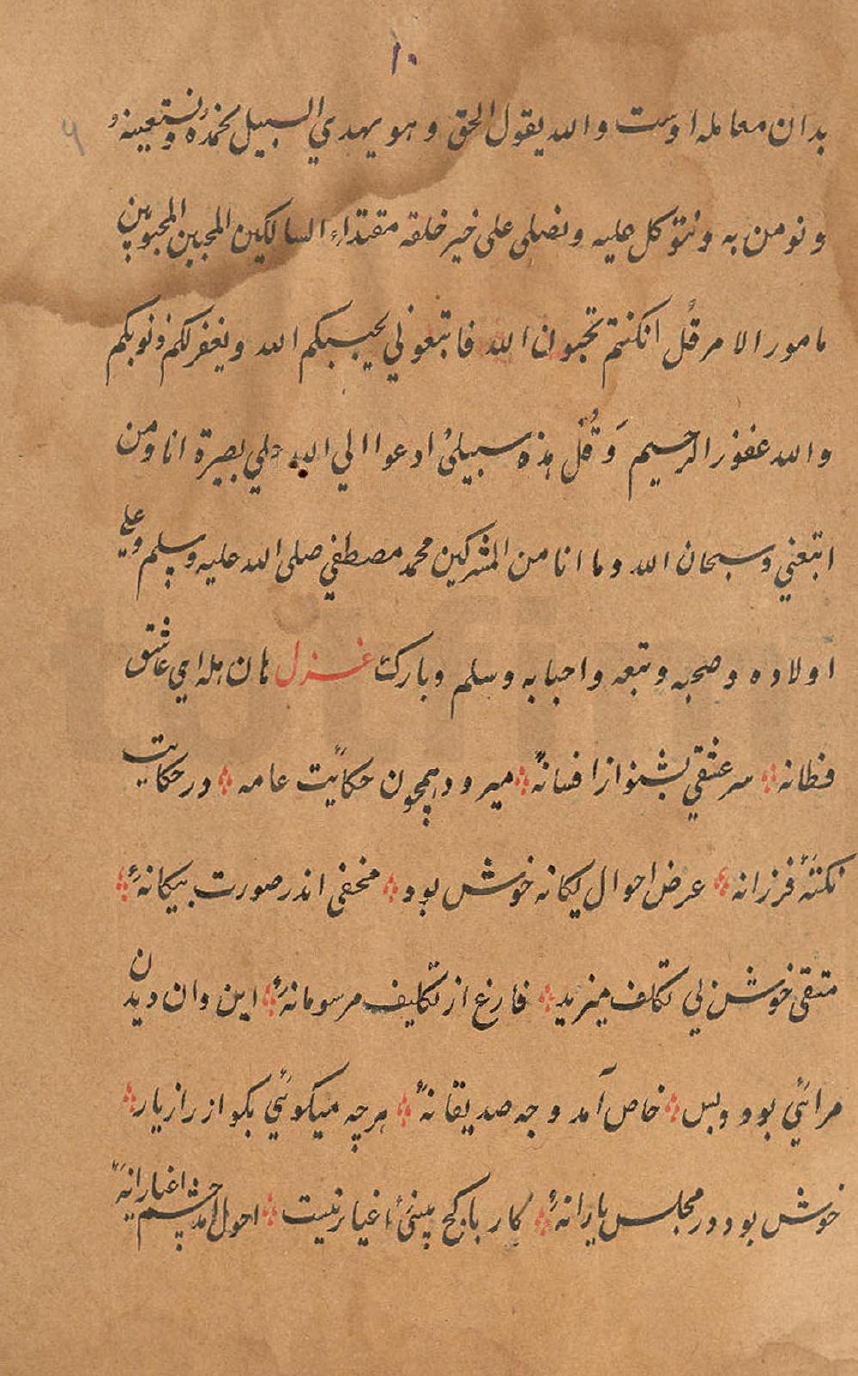 ۱۰
بدان معامله اوست والله يقول الحق وهو يهدي السبيل نحمده ونستعينه و
ونومن به ونتوکل عليه ونصلی علی خير خلقه مقتداء السالکين المحبين المحبوبين
مامور الامر قُل انکنتم تحبون الله فاتبعوني يحببکم الله ويغفرلکم ذنوبکم
والله غفورالرحيم وَقُل هذه سبيلی ادعوا الي الله علي بصيرة انا ومن
اتبعني وسبحان الله وما انا من المشرکين محمد مصطفي صلی الله عليه وسلم وعلي
اولاده وصحبه وتبعه واحبابه وسلم وبارک غزل هان هله اي عاشق
فطانه سر عشقي بشنو از افسانهٔ ميرود همچون حکايت عامه در حکايت
نکتهٔ فرزانه عرض احوال يکانه خوش بود مخفی اندر صورت بيکانهٔ
متقی خوش بي تکلف ميزيد فارغ از تکليف مرسومانهٔ اين وان ديدن
مرائي بود وبس خاص آمد وجه صديقانهٔ هرچه ميکوئي بکو از راز يار
خوش بود در مجلس يارانهٔ کار با کج بينیٔ اغيار نيست احول آمد چشم اغيارانهٔ